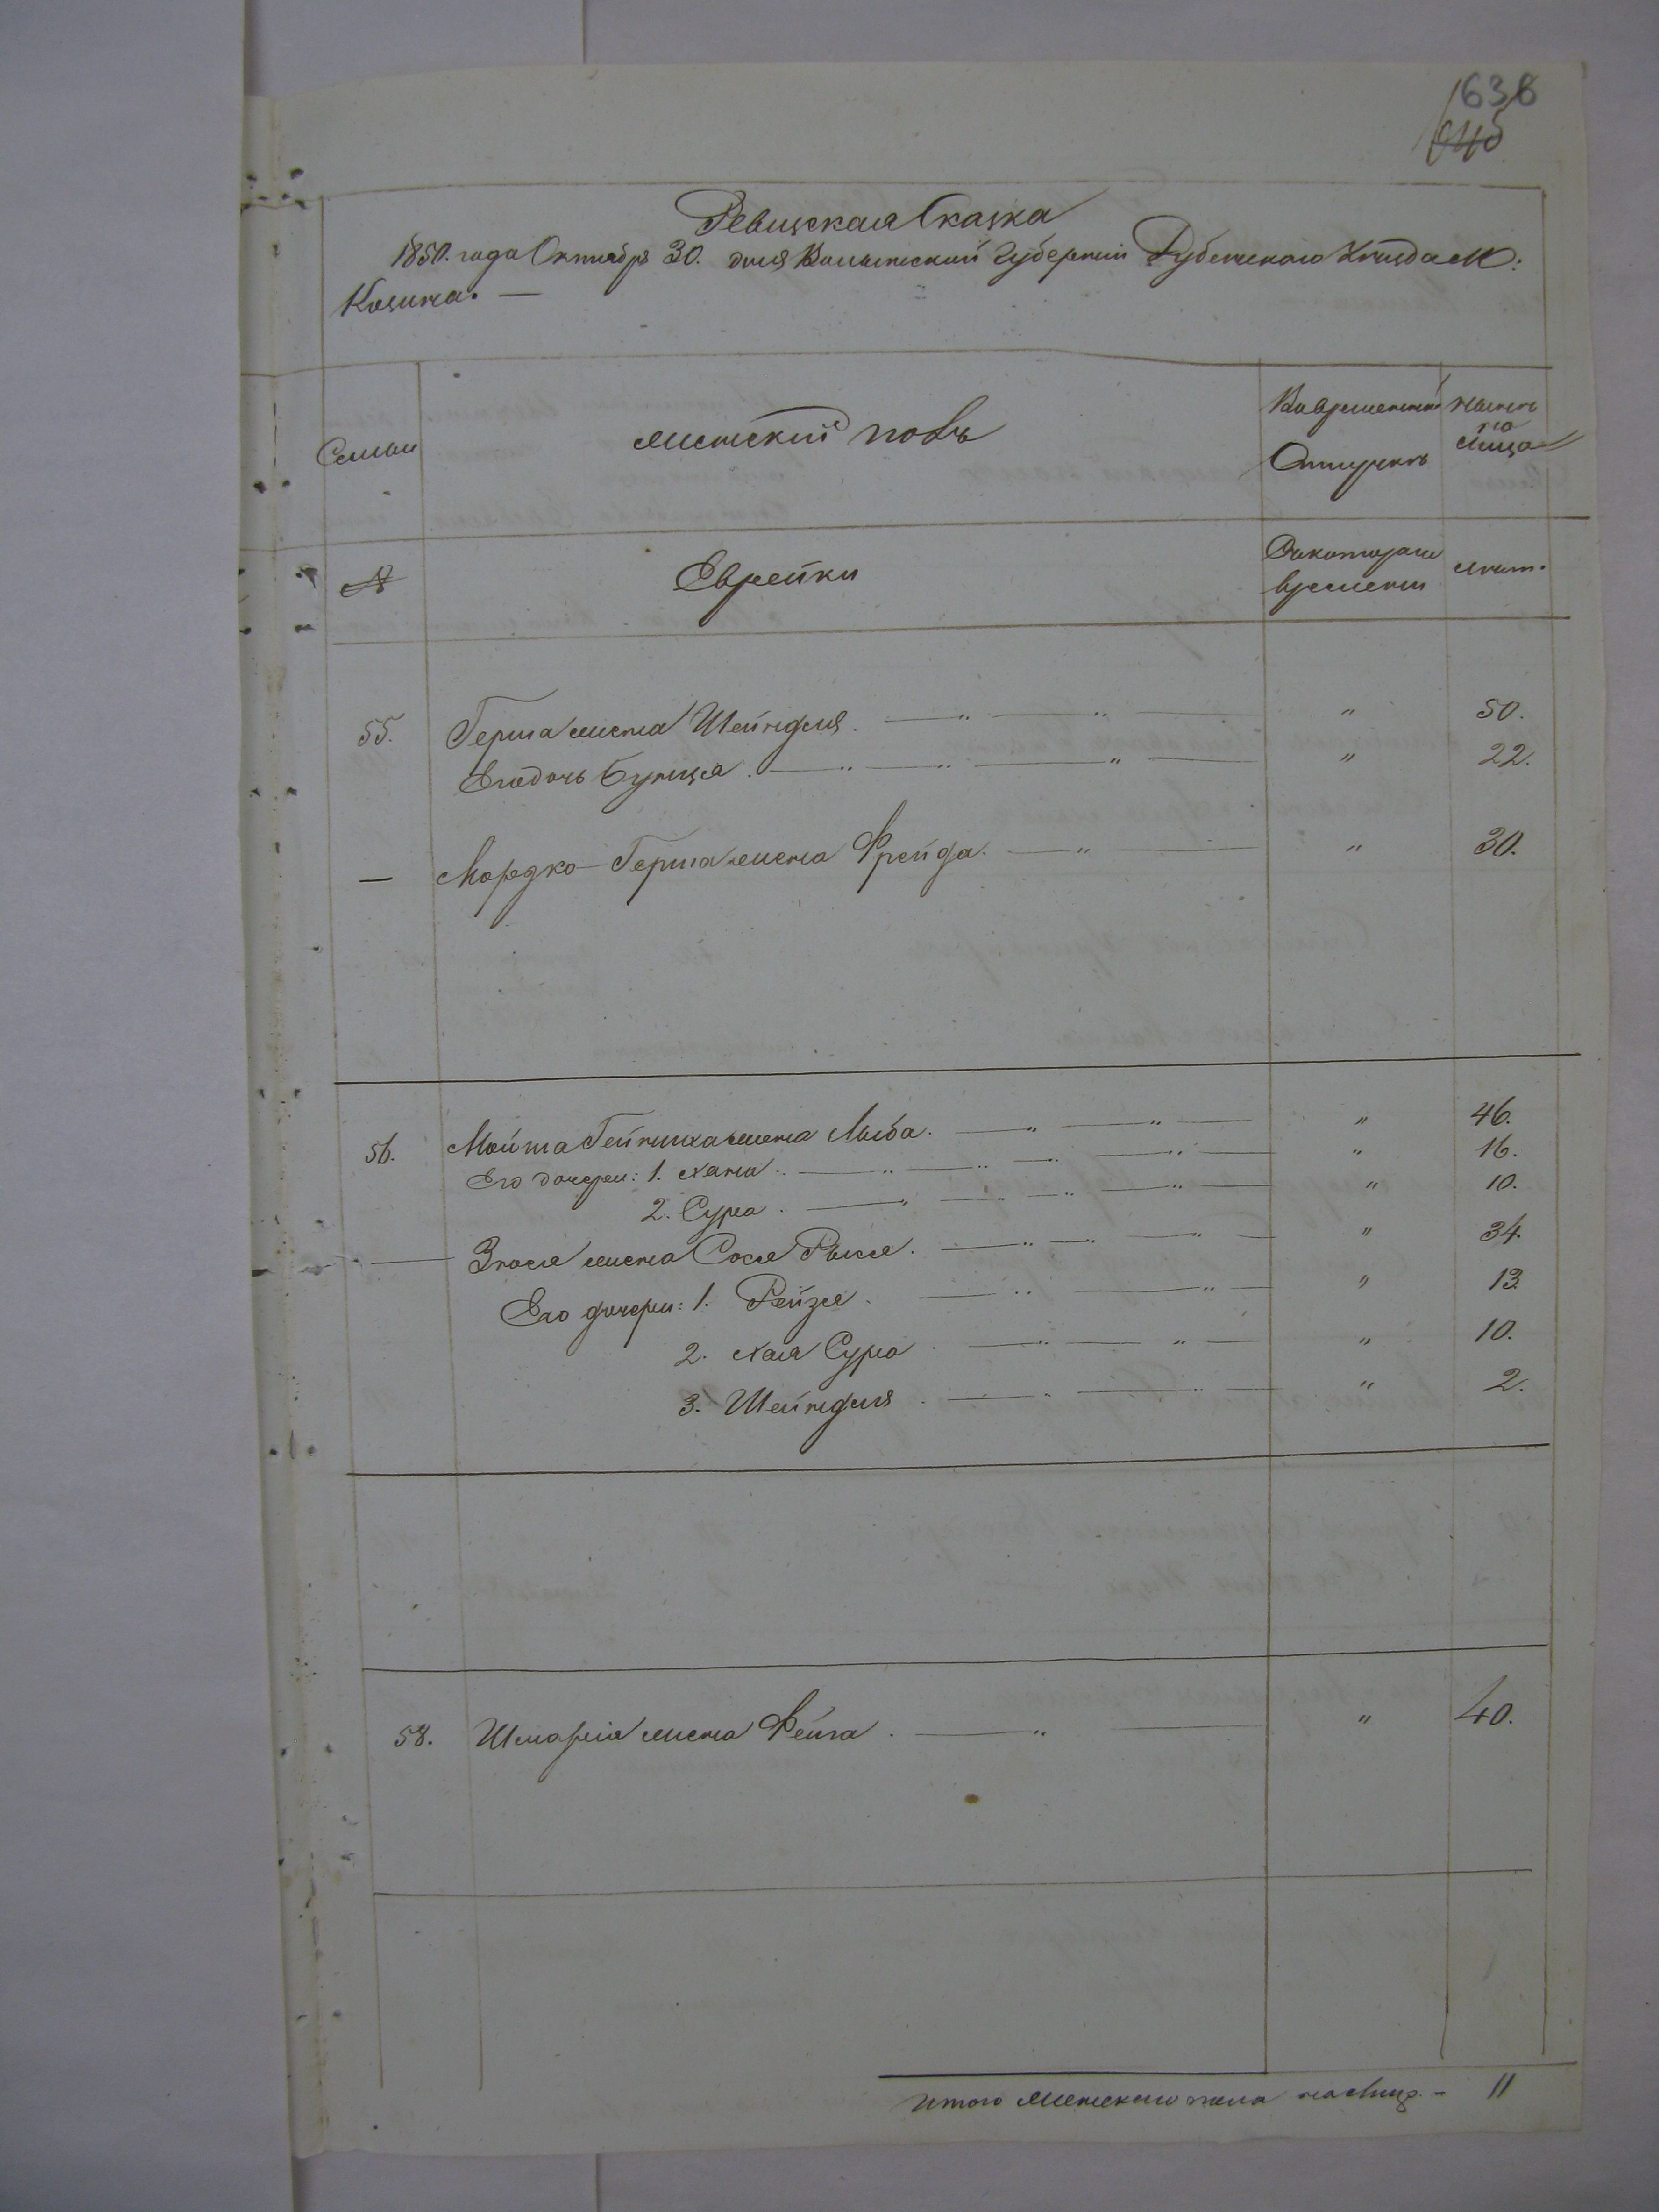 638
645
Ревизская Сказка
1850. года Октября 30. дня Волынской Губернии Дубенского Уезда М:
Козина. —
Семьи
женский полъ
Во временной
Отлучкѣ
Нынѣ
на
лицо
№
Еврейки
Съ котораго
времени
лѣтъ.
55. Герша жена Шейндля. " 50.
Его дочь Бунця. " 22.
— Мордко-Герша жена Фрейда. " 30.
56. жена Лыба. " 46.
Его дочери: 1. Хана. " 16.
2. Сура. " 10.
— жена Сося Рыся. " 34.
Его дочери: 1. Рейзя. " 13
2. Хая Сура " 10.
3. Шейндля. " 2.
58. Шмарія жена Фейга. " 40.
Итого женского пола на лицо. - 11